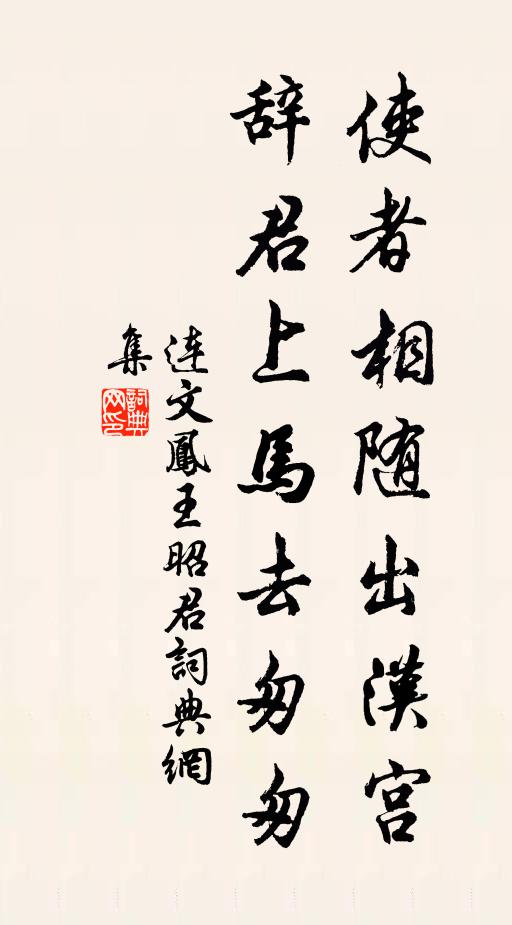 使者相随出漢宫
辞君上馬去匆匆
连文鳳王昭君詞典網
集
詞典网印